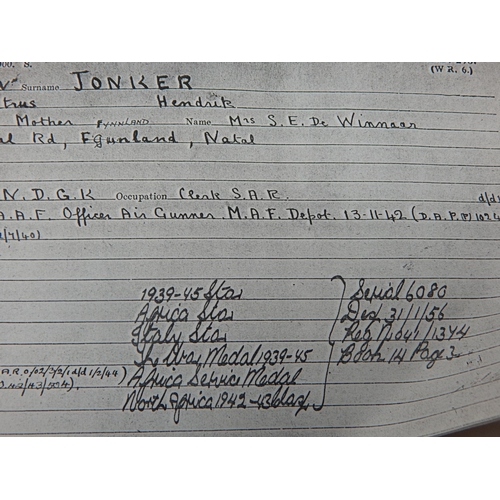 (W R. 6.)
Surname JONKER
trus Hendrik
Mother FYNNLAND Name Mrs S. E. De Winnaar
al Rd, Fgunland, Natal
N. D. G. K Occupation Clerk S.A.R. d/d1
A.A.F. Officer Air Gunner. M.A.F. Depot. 13-11-42 (D.A.P.(P) 1024
/7/40)
1939-45 Star
Africa Star
Italy Star
The War Medal 1939-45
Africa Service Medal
North Africa 1942-43 Clasp
Serial 6080
Des 31/1/56
Reg No 641/1344
Book 14 Page 2
A.R.O/02/3/2/1d/d1/2/44)